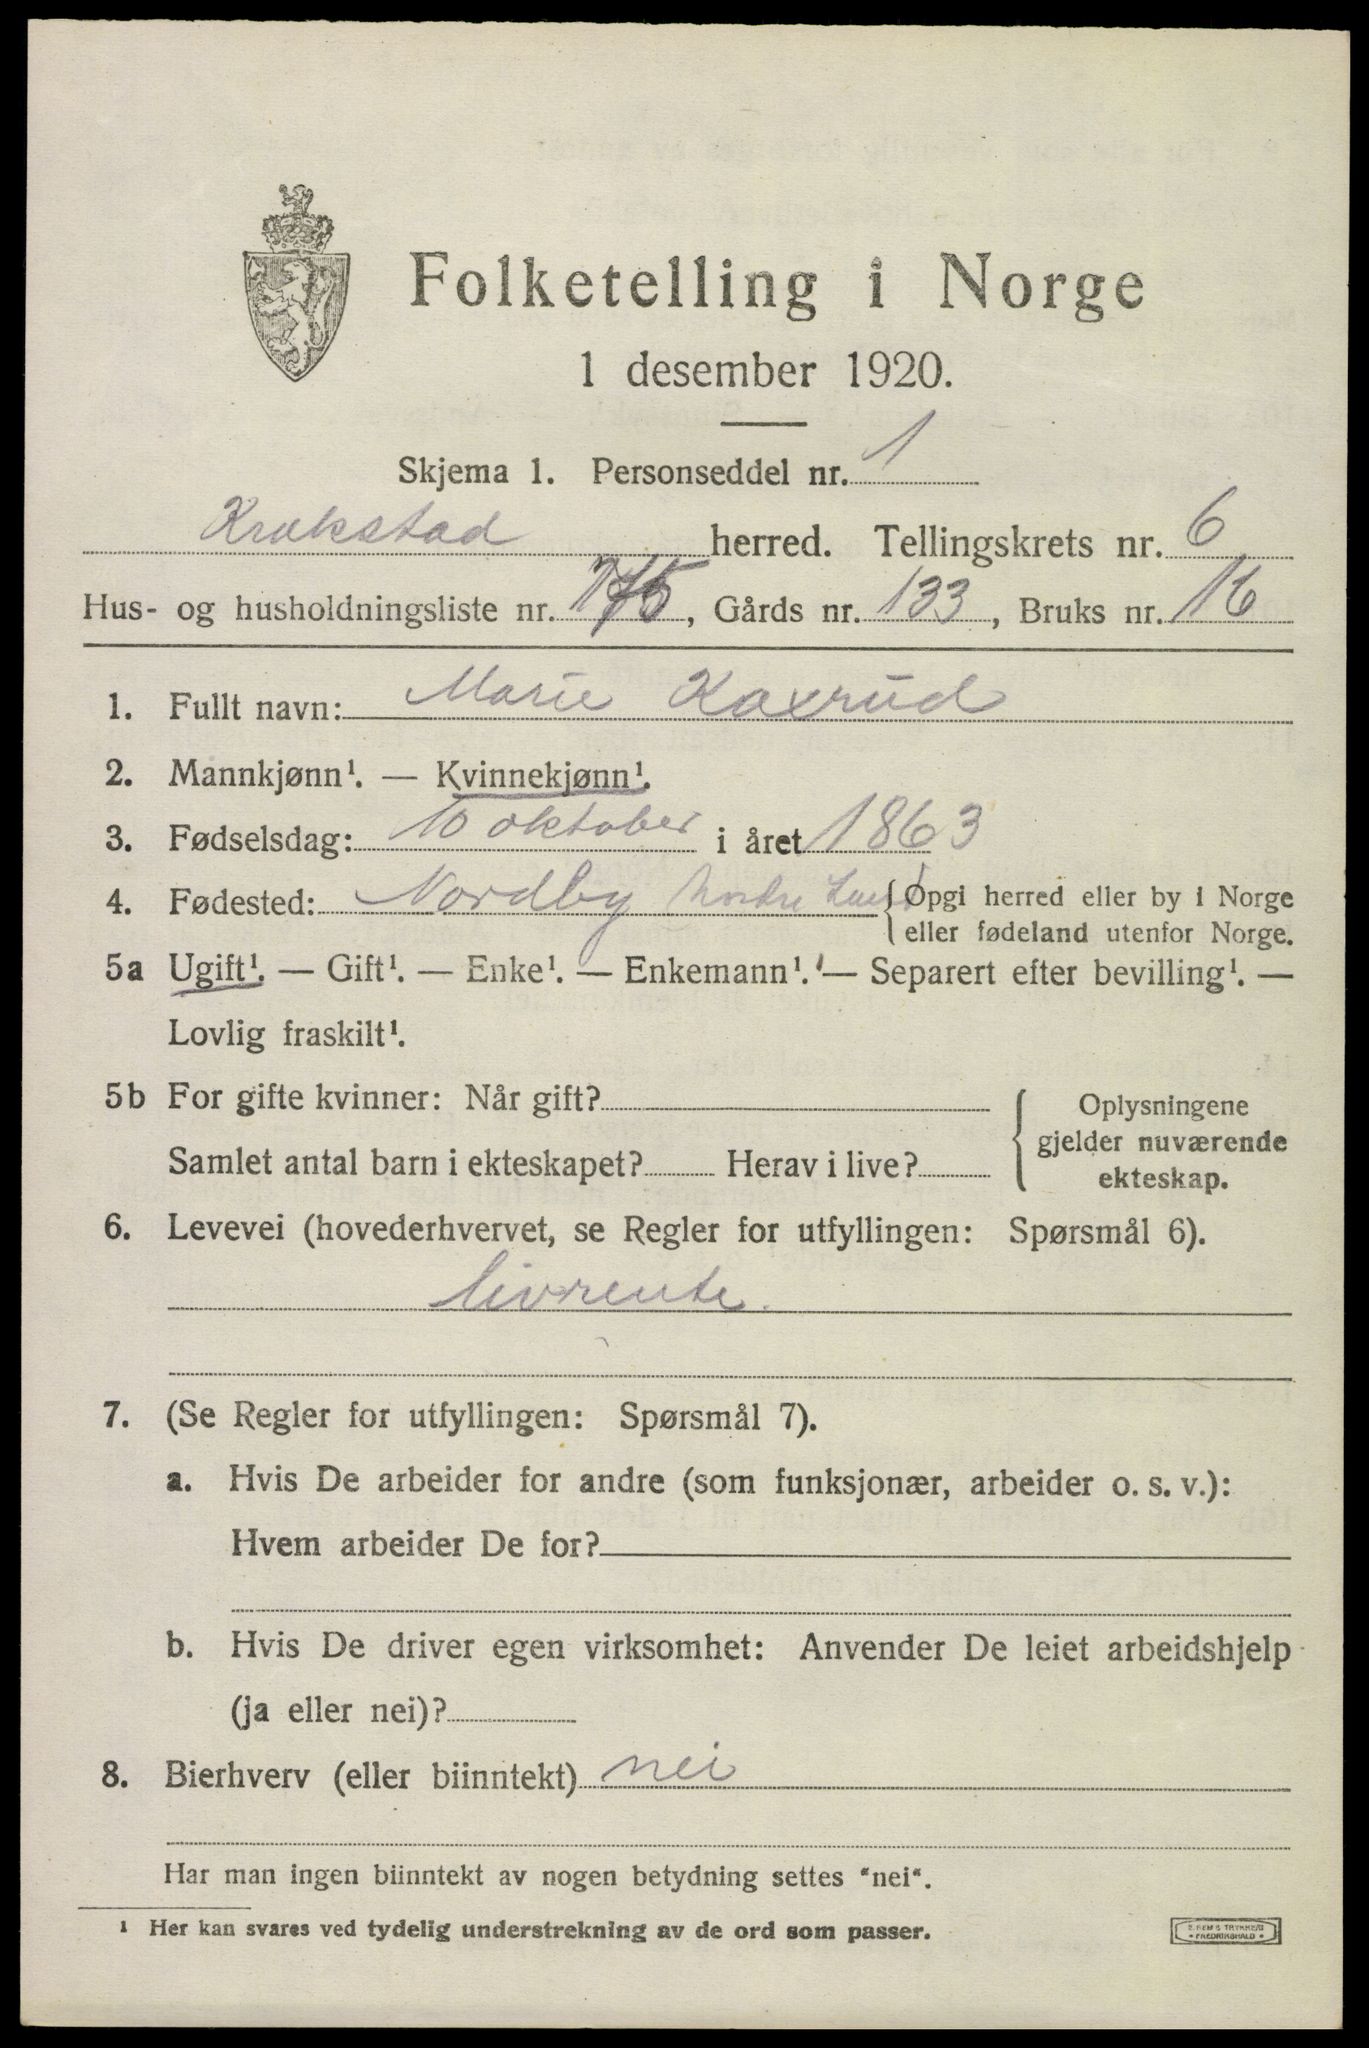 Folketelling i Norge
1 desember 1920.
Skjema 1. Personseddel nr. 1
Krakstad herred. Tellingskrets nr. 6
Hus- og husholdningsliste nr. 175, Gårds nr. 133, Bruks nr. 16
1. Fullt navn: Marie Kaxrud
2. Mannkjønn¹. — Kvinnekjønn¹.
3. Fødselsdag: 10 oktober i året 1863
4. Fødested: Nordby { Opgi herred eller by i Norge
eller fødeland utenfor Norge.
5a Ugift¹. — Gift¹. — Enke¹. — Enkemann¹. — Separert efter bevilling¹. —
Lovlig fraskilt¹.
5b For gifte kvinner: Når gift?
Samlet antal barn i ekteskapet? Herav i live?
{ Oplysningene
gjelder nuværende
ekteskap.
6. Levevei (hovederhvervet, se Regler for utfyllingen: Spørsmål 6).
livrente.
7. (Se Regler for utfyllingen: Spørsmål 7).
a. Hvis De arbeider for andre (som funksjonær, arbeider o. s. v.):
Hvem arbeider De for?
b. Hvis De driver egen virksomhet: Anvender De leiet arbeidshjelp
(ja eller nei)?
8. Bierhverv (eller biinntekt) nei
Har man ingen biinntekt av nogen betydning settes “nei“.
¹ Her kan svares ved tydelig understrekning av de ord som passer.
FREDRIKSHALD